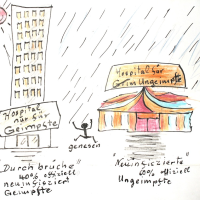 Hospital
nur für
Geimpfte
Hospital für
Ungeimpfte
genesen
"Durchbrüche"
40% offiziell
neuinfizierter
Geimpfte
"Neuinfizierte"
60% offiziell
Ungeimpfte